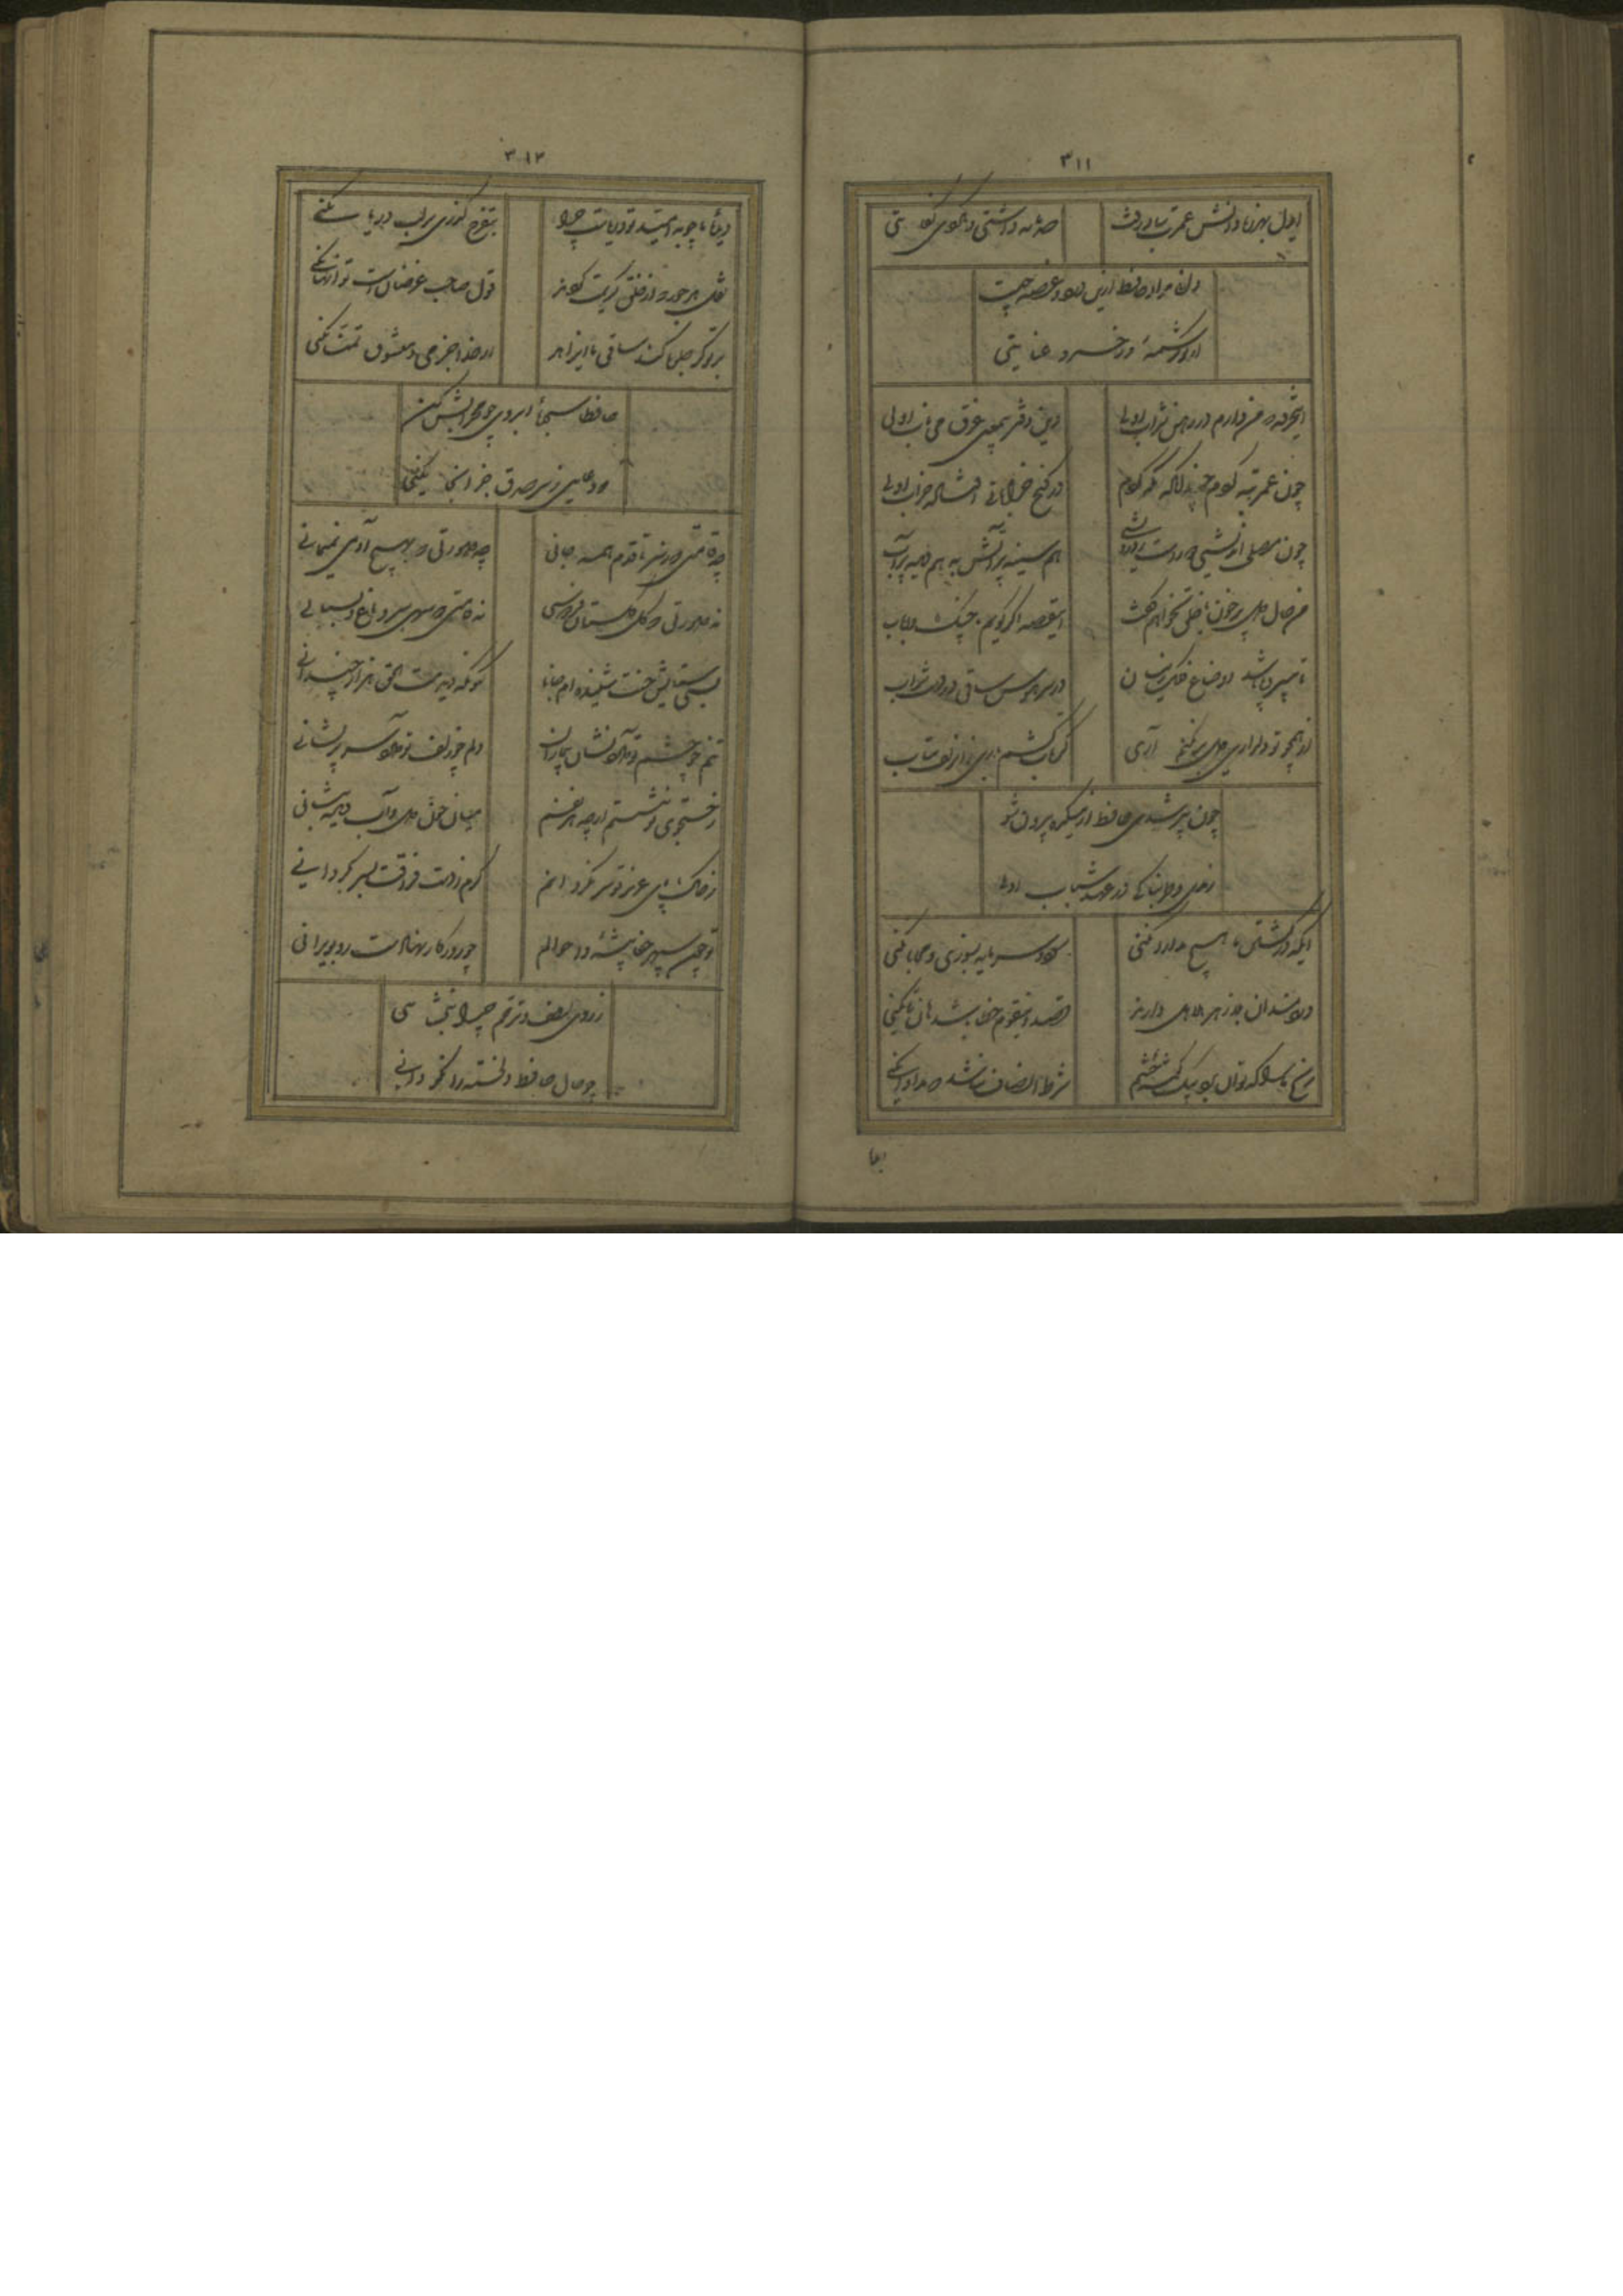 ۳۱۱
ایدل بهرزه دانش عمرت بباد رفت صد مایه داشتی و نکردی کفایتی
دانی مراد حافظ ازین درد و غصه چیست
از تو کرشمهٔ و ز خسرو عنایتی
اینخرقه که من دارم در رهن شراب اولی وین دفتر بیمعنی غرق می ناب اولی
چون عمر تبه کردم چندانکه نگه کردم در کنج خراباتی افتاده خراب اولی
چون مصلحت اندیشی دورست ز درویشی هم سینه پر آتش به هم دیده پر آب
من حال دل پر خون با خلق نخواهم گفت اینقصه اگر گویم با چنگ و رباب
تا بی سر و پا باشد اوضاع فلک زینسان در سر هوس ساقی در دست شراب
از همچو تو دلداری دل بر نکنم آری گر تاب کشم باری زان زلف بتاب
چون پیر شدی حافظ از میکده بیرون شو
رندی و هوسناکی در عهد شباب اولی
ایکه در کشتن ما هیچ مدارا نکنی سود و سرمایه بسوزی و محابا نکنی
دردمندان بلا زهر هلاهل دارند قصد اینقوم خطا باشد هان تا نکنی
رنج ما را که توان برد بیک گوشه چشم شرط انصاف نباشد که مداوا نکنی
۳۱۲
دیدهٔ ما چو به امید تو دریاست چرا بتفرج گذری بر لب دریا نکنی
نقل هر جور که از خلق کریمت کردند قول صاحب غرضان است تو آنها نکنی
بر تو گر جلوه کند ساقی ما ای زاهد از خدا جز می و معشوق تمنا نکنی
حافظا سجدهٔ ابروی چو محرابش کن
که دعایی ز سر صدق جز آنجا نکنی
چه قامتی که ز سر تا قدم همه جانی چه صورتی که بهیچ آدمی نمیمانی
نه صورتی که گل گلستان فردوسی نه قامتی که سهی سرو باغ و بستانی
بسی ستایش حسنت شنیده‌ام جانا کنونکه دیدمت الحق هزار چندانی
تنم چو چشم تو دارد نشان بیماری دلم چو زلف تو دارد سر پریشانی
ز جستجوی تو ننشستم ار چه هر نفسم میان خون دل و آب دیده بنشانی
ز خاک پای عزیز تو سر نگردانم گرم ز دست فراقت بسر بگردانی